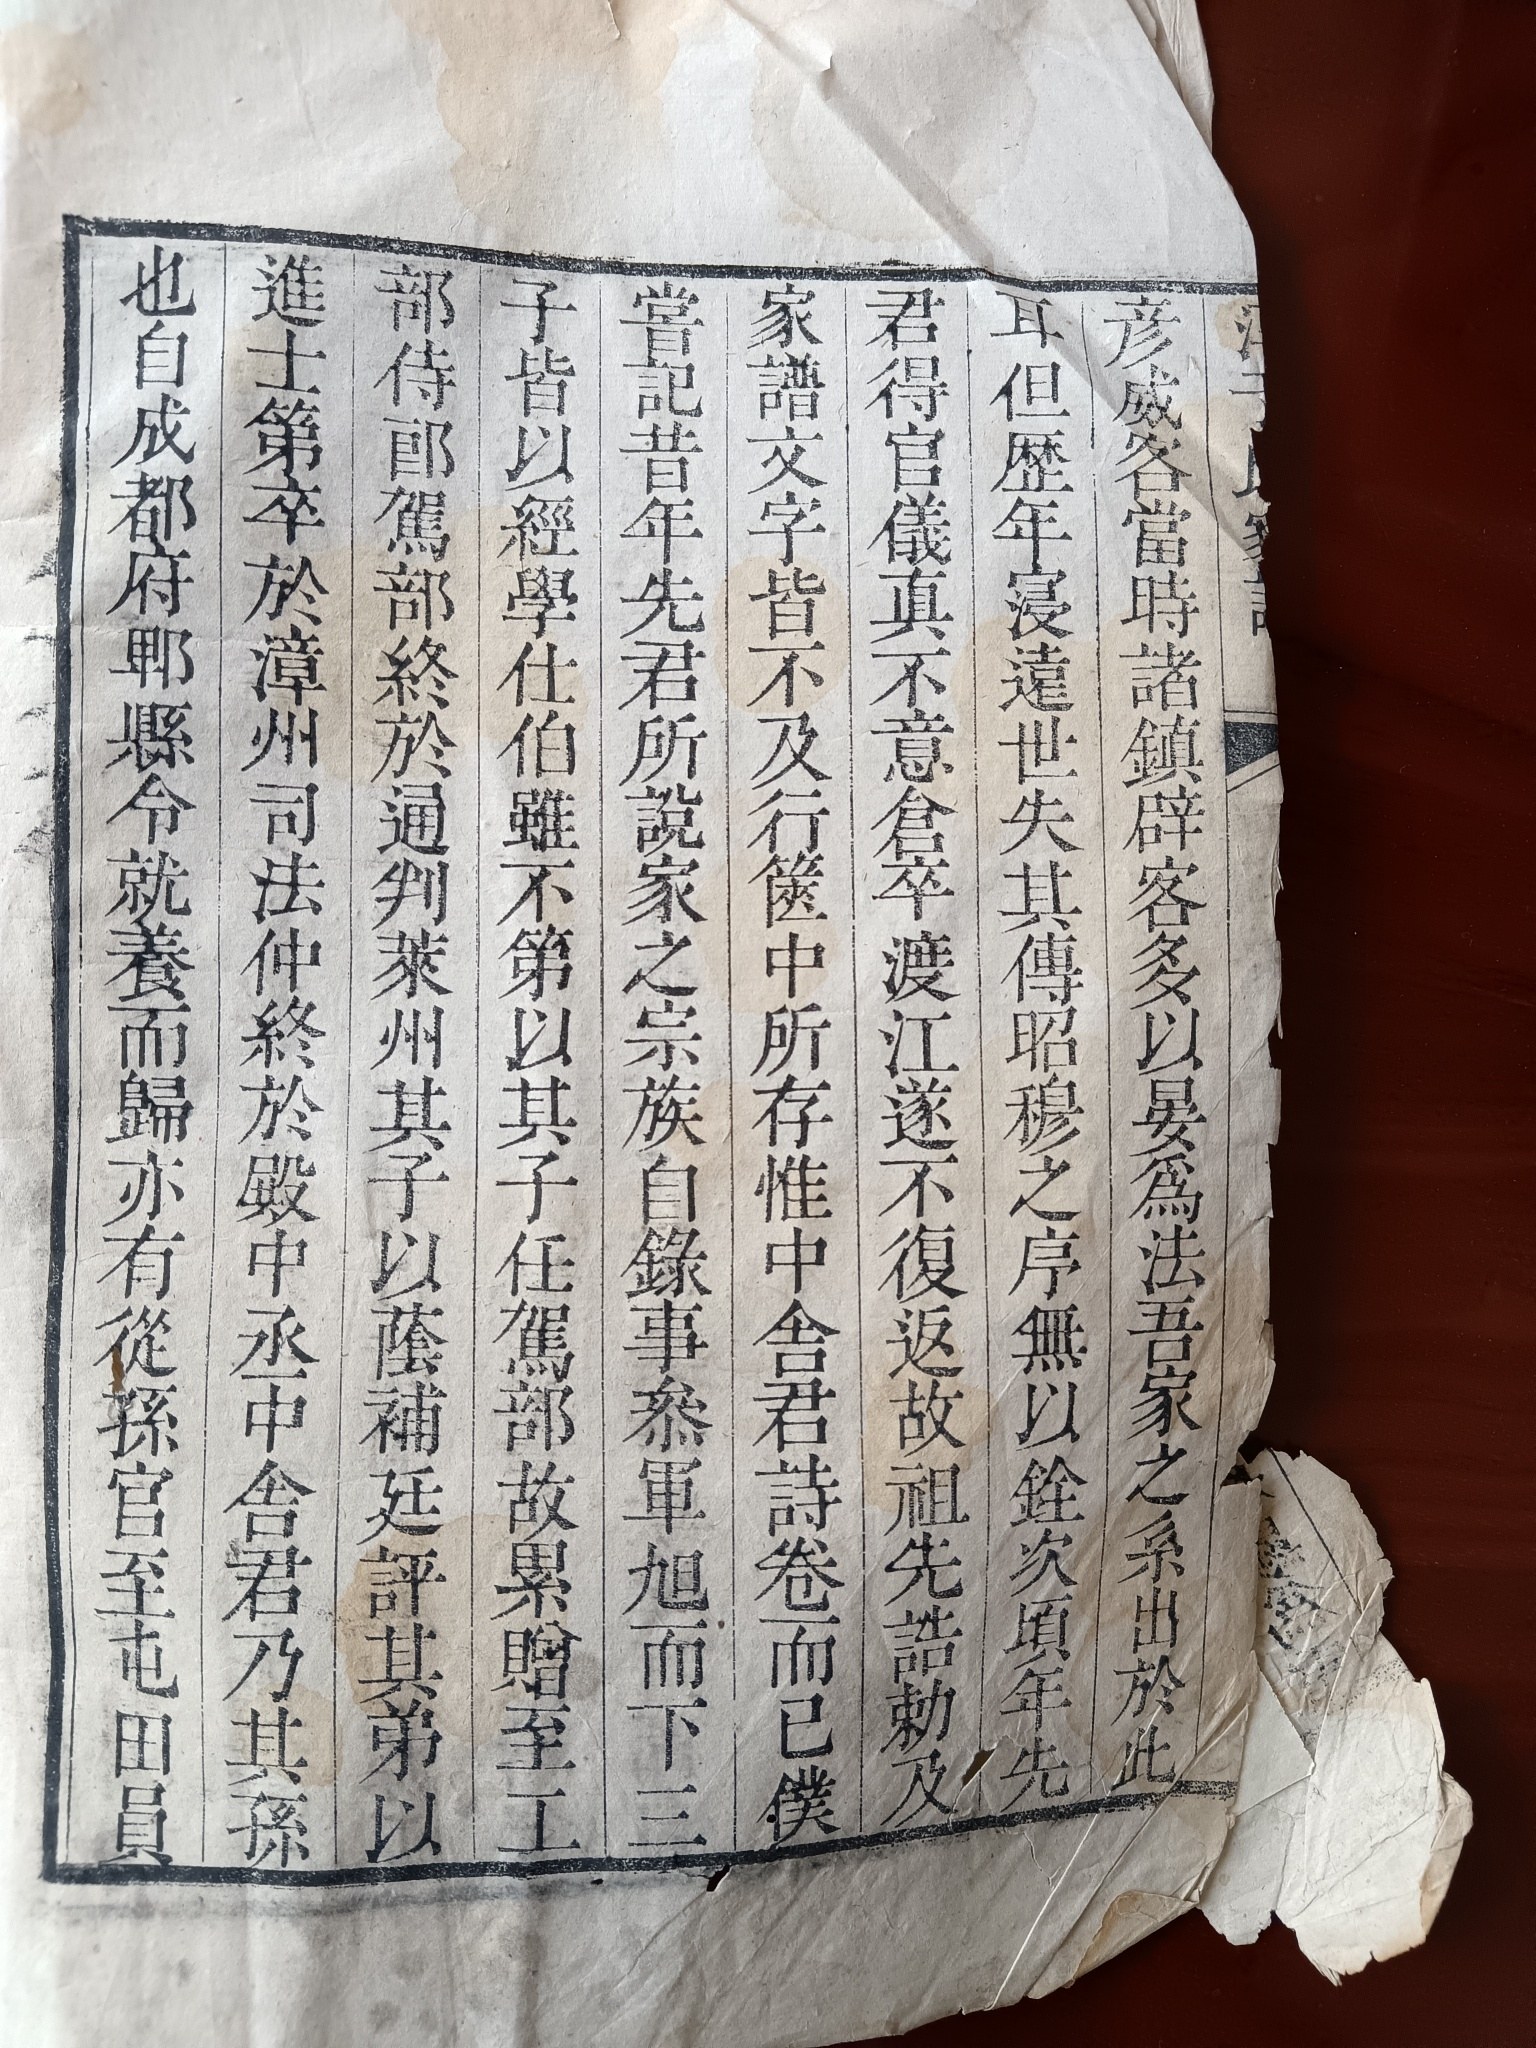 彦威客當時諸鎮辟客多以晏爲法吾家之系出於此
耳但歴年寖遠世失其傳昭穆之序無以銓次頃年先
君得官儀真不意倉卒渡江遂不復返故祖先誥勅及
家譜文字皆不及行篋中所存惟中舍君詩卷而已僕
嘗記昔年先君所說家之宗族自錄事叅軍旭而下三
子皆以經學仕伯雖不第以其子任駕部故累贈至工
部侍郎駕部終於通判萊州其子以蔭補廷評其弟以
進士第卒於漳州司法仲終於殿中丞中舍君乃其孫
也自成都府郫縣令就養而歸亦有從孫官至屯田員